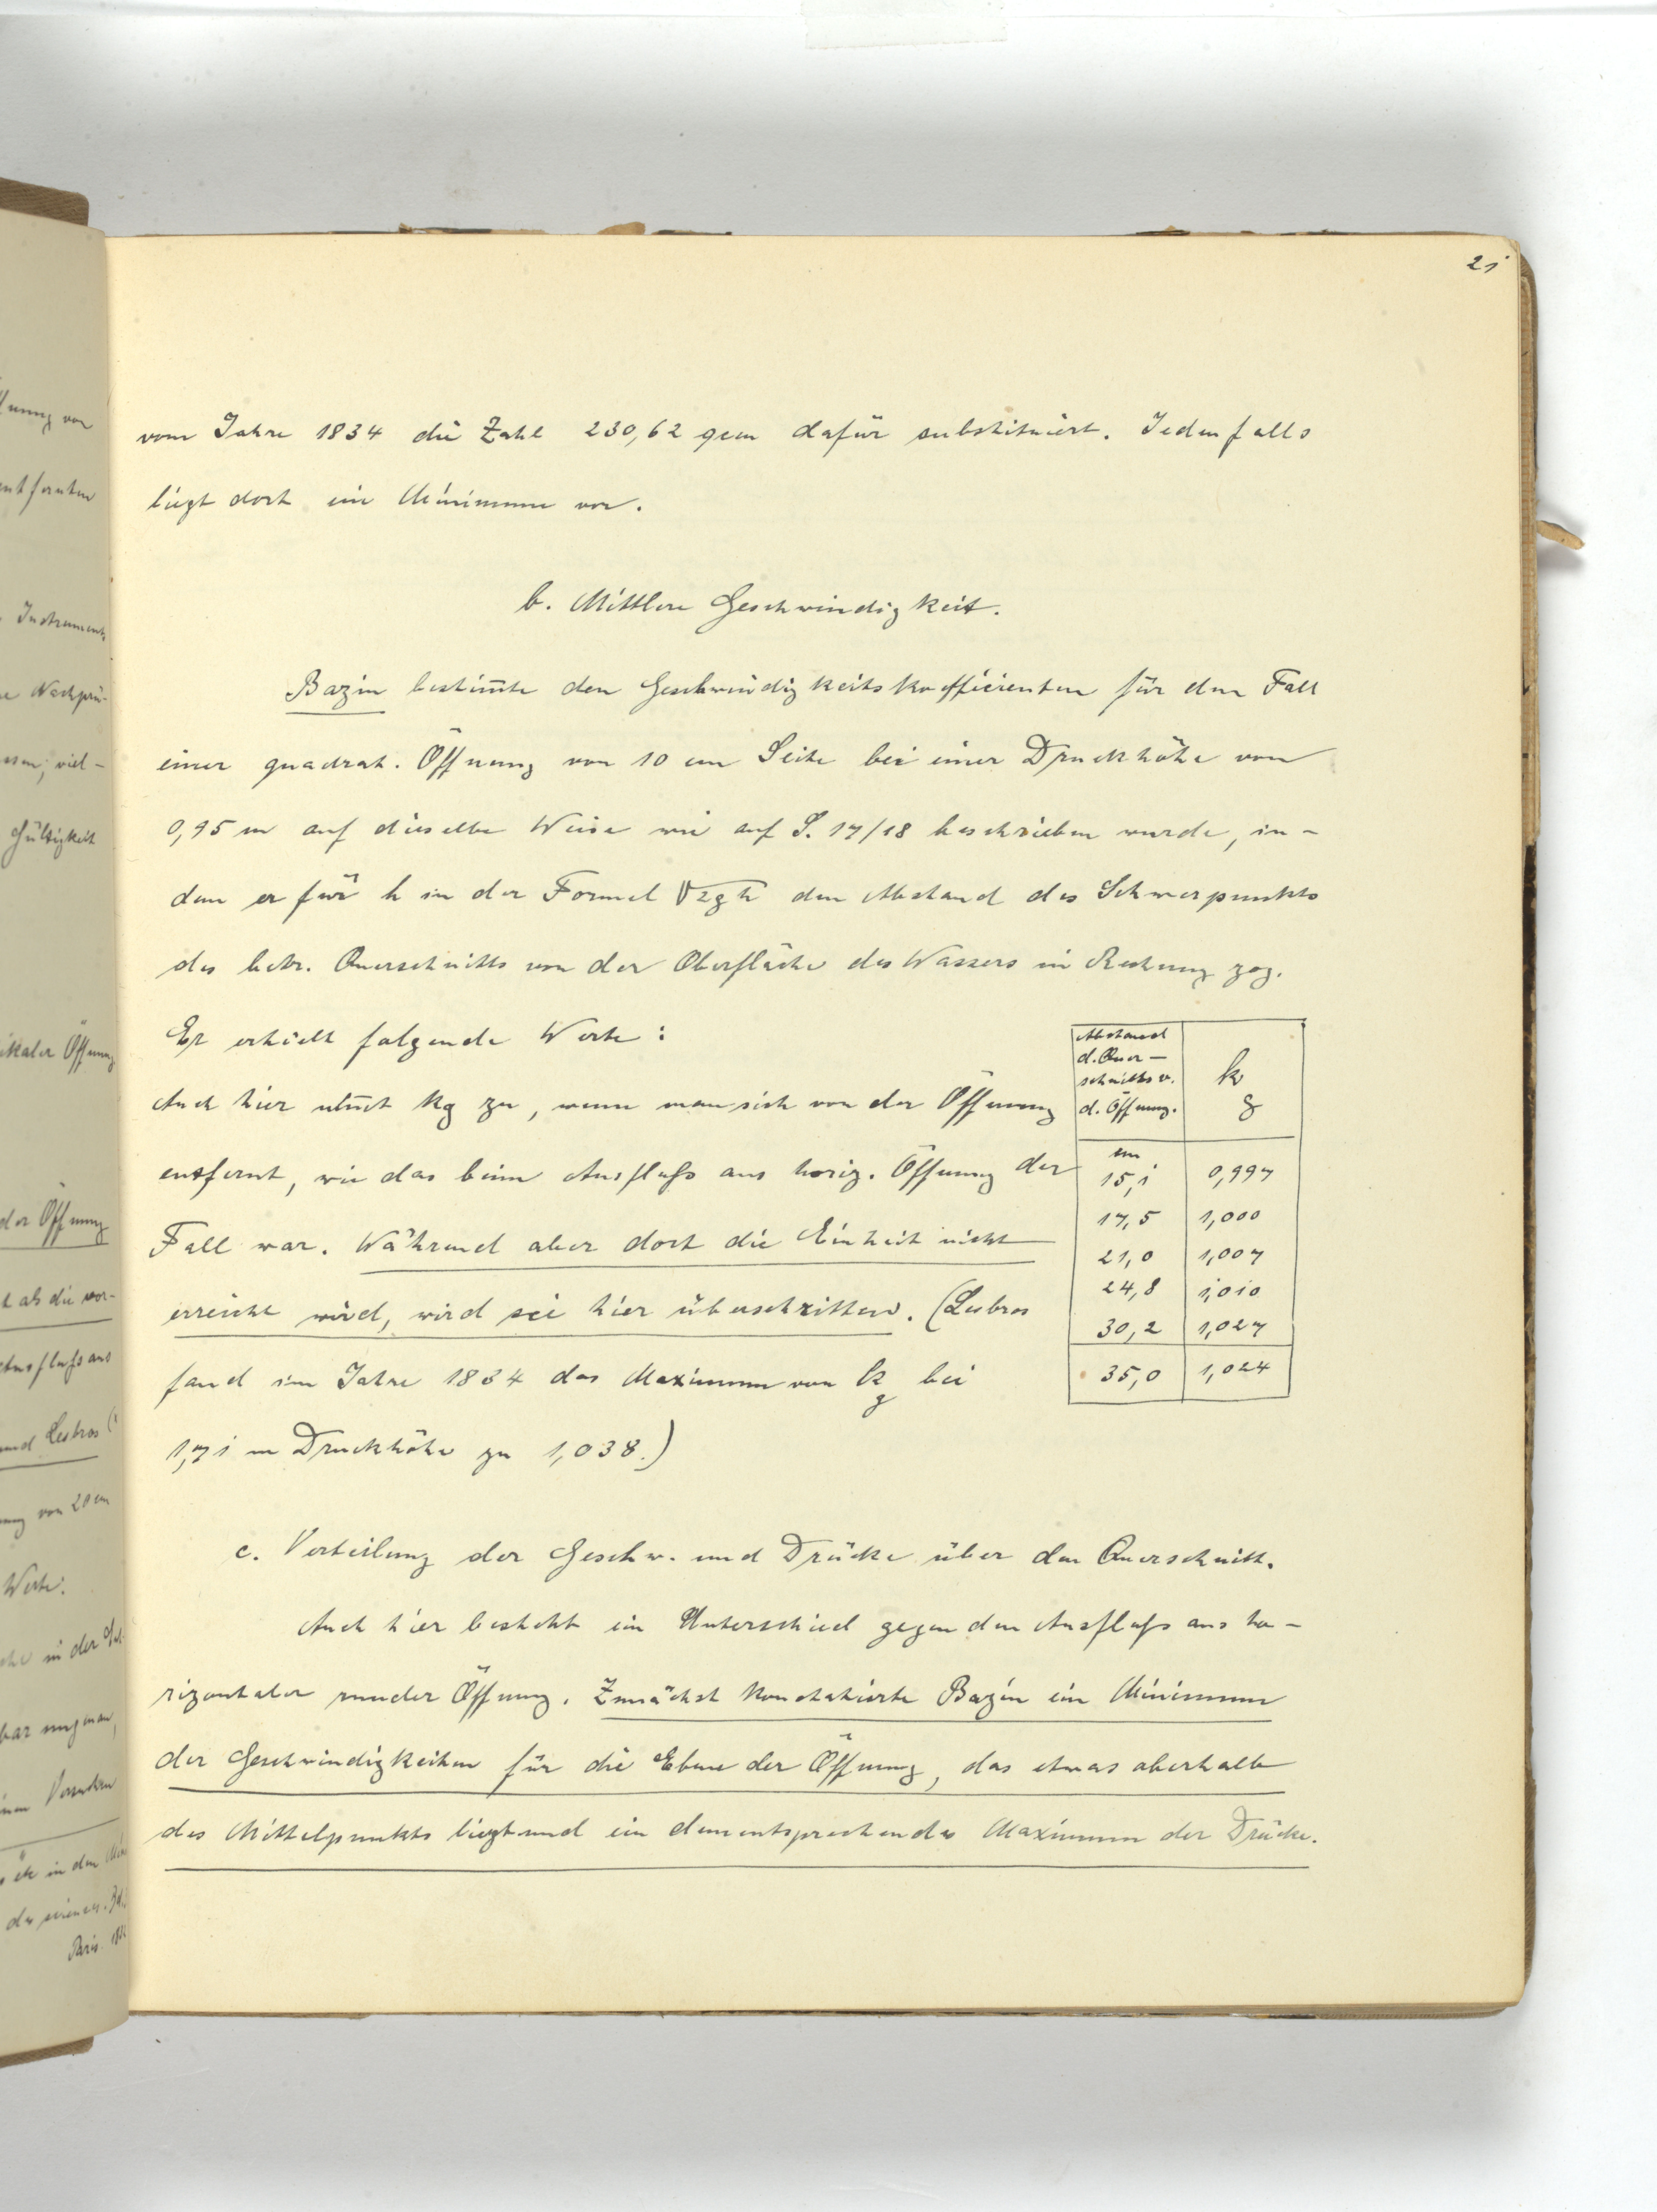 21
vom Jahre 1834 die Zahl 230,62 qcm dafür substituiert. Jedenfalls
liegt dort ein Minimum vor.
b. Mittlere Geschwindigkeit.
Bazin bestim̅te den Geschwindigkeitskoefficienten für den Fall
einer quadrat. Öffnung von 10 cm Seite bei einer Druckhöhe von
0,95 m auf dieselbe Weise wie auf S. 17/18 beschrieben wurde, in-
dem er für h in der Formel √2gh den Abstand des Schwerpunkts
des betr. Querschnitts von der Oberfläche des Wassers in Rechnung zog.
Er erhielt folgende Werte:
Auch hier nim̅t kg zu, wenn man sich von der Öffnung
entfernt, wie das beim Ausfluß aus horiz. Öffnung der
Fall war. Während aber dort die Einheit nicht
erreicht wird, wird sie hier überschritten. (Lesbros
fand im Jahre 1834 das Maximum von kg bei
1,71 m Druckhöhe zu 1,038.)
Abstand
d. Quer-
schnitts v.
d. Öffnung.
kg
cm
15,1 0,997
17,5 1,000
21,0 1,007
24,8 1,010
30,2 1,027
35,0 1,024
c. Verteilung der Geschw. und Drücke über den Querschnitt.
Auch hier besteht ein Unterschied gegen den Ausfluß aus ho-
rizontaler runder Öffnung. Zunächst konstatierte Bazin ein Minimum
der Geschwindigkeiten für die Ebene der Öffnung, das etwas oberhalb
des Mittelpunkts liegt und ein dementsprechendes Maximum der Drücke.